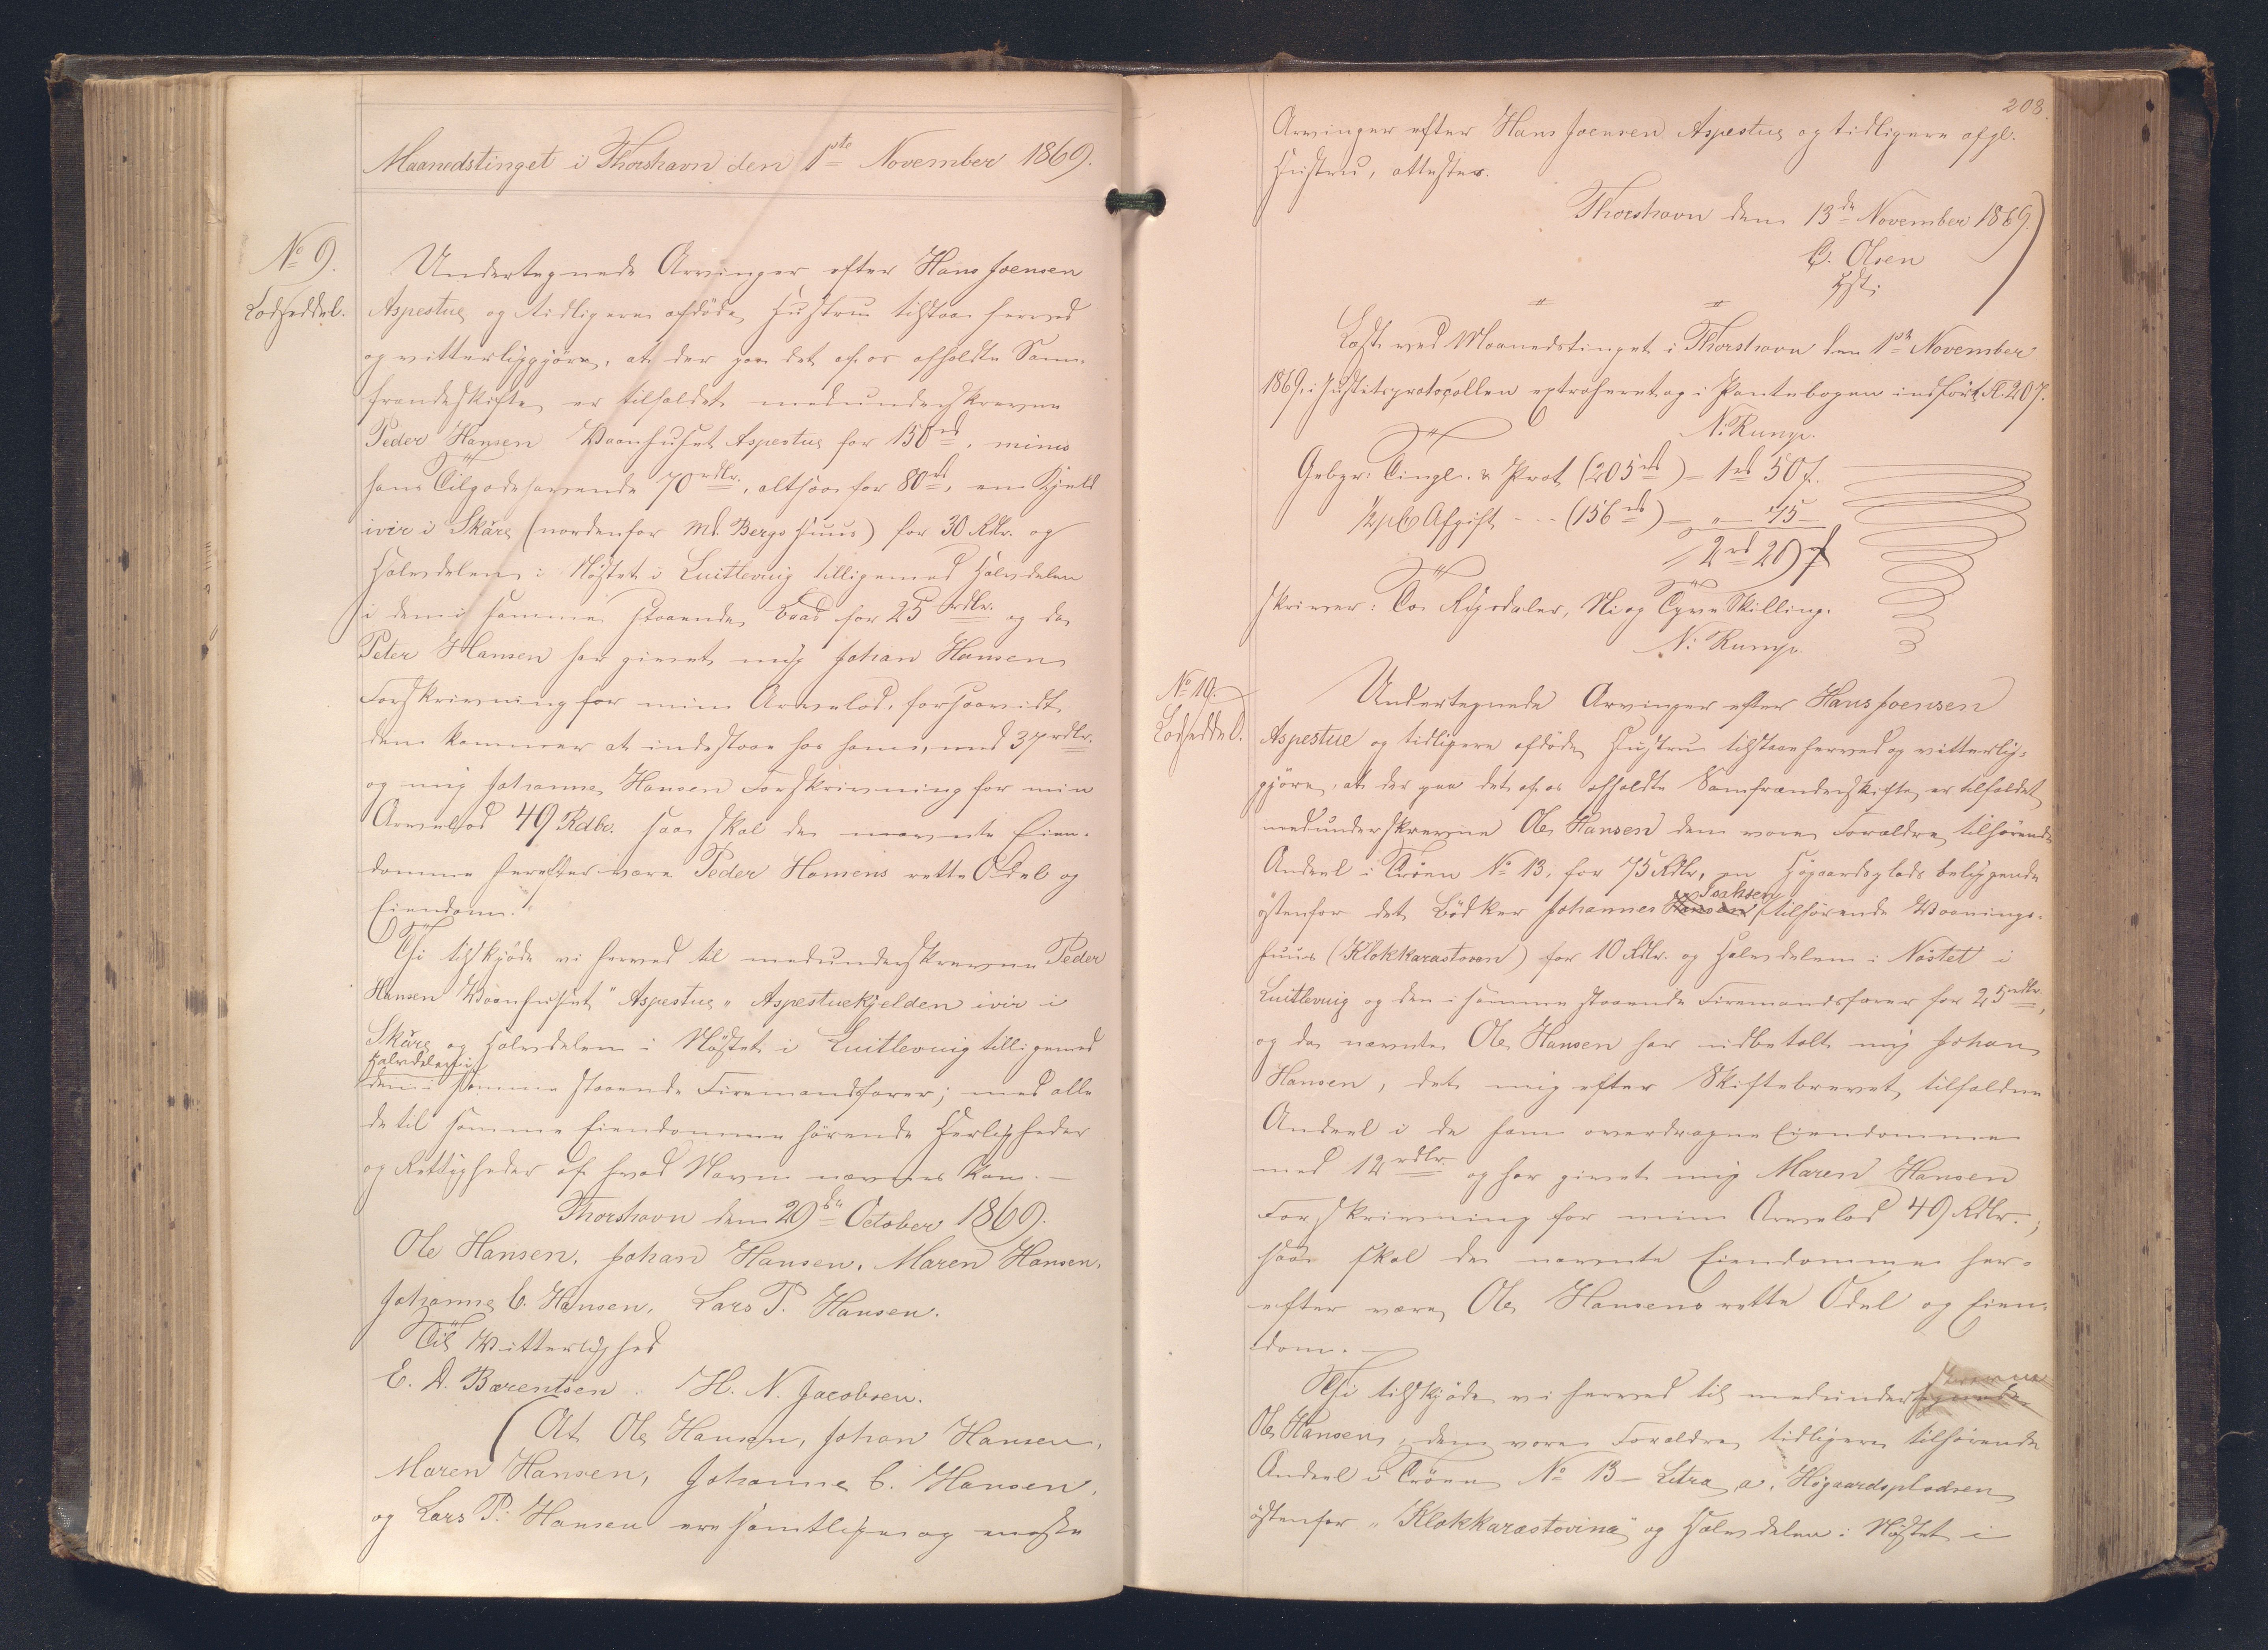 Maanedstinget i Thorshavn den 1ste November 1869.
No 9.
Lodseddel.
Undertegnede Arvinger efter Hans Joensen
Aspestue og tidligere afdöde Hustru tilstaae herved
og vitterliggjöre, at der paa det af os afholdte Sam-
frændeskifte er tilfaldet medunderskrevne
Peder Hansen Vaanhuset Aspestue for 150 rd, minus
hans Tilgodehavende 70 rdlr., altsaa for 80 rd, en Kjeld
ivir i Skåre (nordenfor Md. Bergs Huus) for 30 Rdlr. og
Halvdelen i Nöstet i Luitlevuig tilligemed Halvdelen
i den i samme staaende Baad for 25 rdlr. og da
Peter Hansen har givet mig Johan Hansen
Forskrivning for min Arvelod, forsaavidt
den kommer at indestaae hos ham, med 37 rdlr.
og mig Johanne Hansen Forskrivning for min
Arvelod 49 Rdlr. saa skal de nævnte Eien-
domme herefter være Peder Hansens rette Odel og
Eiendom.
Thi tilskjöde vi herved til medunderskrevne Peder
Hansen Vaanhuset "Aspestue" Aspestuekjelden ivir i
Skåre og Halvdelen i Nöstet i Luitlevuig tilligemed
Halvdelen i
den i samme staaende Firemandsfarer; med alle
de til samme Eiendomme hörende Herligheder
og Rettigheder af hvad Navn nævnes kan. —
Thorshavn den 29de October 1869.
Ole Hansen. Johan Hansen. Maren Hansen.
Johanne C. Hansen. Lars P. Hansen.
Til Vitterlighed
E. D. Bærentsen. H. N. Jacobsen.
(At Ole Hansen, Johan Hansen,
Maren Hansen, Johanne C. Hansen,
og Lars P. Hansen ere samtlige og eneste
208.
Arvinger efter Hans Joensen Aspestue og tidligere afgl.
Hustru, attesteres.
Thorshavn den 13de November 1869.)
C. Olsen
Læst ved Maanedstinget i Thorshavn den 1ste November
1869, i Justitsprotocollen extraheret og i Pantebogen indfört Fl. 207.
N. Rump.
Gebyr: Tingl. & Prot (205 rd) = 1 rd 50 f.
1/2 pCt Afgift - - - (156 rd) = " — 75 —
2 rd 29 f
skriver: To Rigsdaler, Ni og Tyve Skilling.
N. Rump.
No 10.
Lodseddel.
Undertegnede Arvinger efter Hans Joensen
Aspestue og tidligere afdöde Hustru tilstaae herved og vitterlig-
gjöre, at der paa det af os afholdte Samfrændeskifte er tilfaldet
medunderskrevne Ole Hansen den vore Forældre tilhörende
Andeel i Tröen No 13. for 75 Rdlr, en Högaardsplads beliggende
Isaksen
östenfor det Bödker Johannes Hansen tilhörende Vaanings-
huus (Klokkarastoven) for 10 Rdlr. og Halvdelen i Nöstet i
Luitlevuig og den i samme staaende Firemandsfarer for 25 rdlr.,
og da nævnte Ole Hansen har udbetalt mig Johan
Hansen, det mig efter Skiftebrevet tilfaldne
Andeel i de ham overdragne Eiendomme
med 12 rdlr. og har givet mig Maren Hansen
Forskrivning for min Arvelod 49 Rdlr.;
saa skal de nævnte Eiendomme her-
efter være Ole Hansens rette Odel og Eien-
dom. —
skrevne
Thi tilskjöde vi herved til medundertegnede
Ole Hansen, den vore Forældre tidligere tilhörende
Andeel i Tröen No 13 — Litra a, Högaardspladsen
östenfor "Klokkarastovina" og Halvdelen i Nöstet i